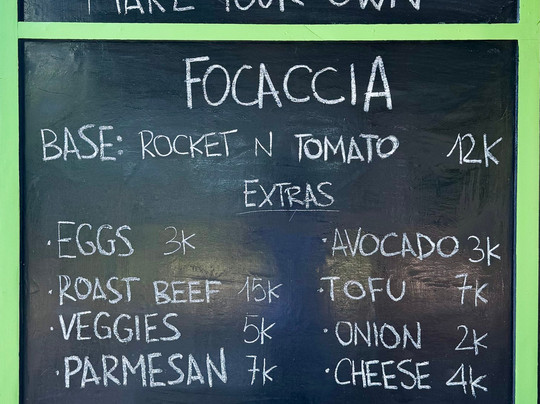 MAKE YOUR OWN
FOCACCIA
BASE: ROCKET N TOMATO 12K
EXTRAS
· EGGS 3K
· AVOCADO 3K
· ROAST BEEF 15K
· TOFU 7K
· VEGGIES 5K
· ONION 2K
· PARMESAN 7K
· CHEESE 4K